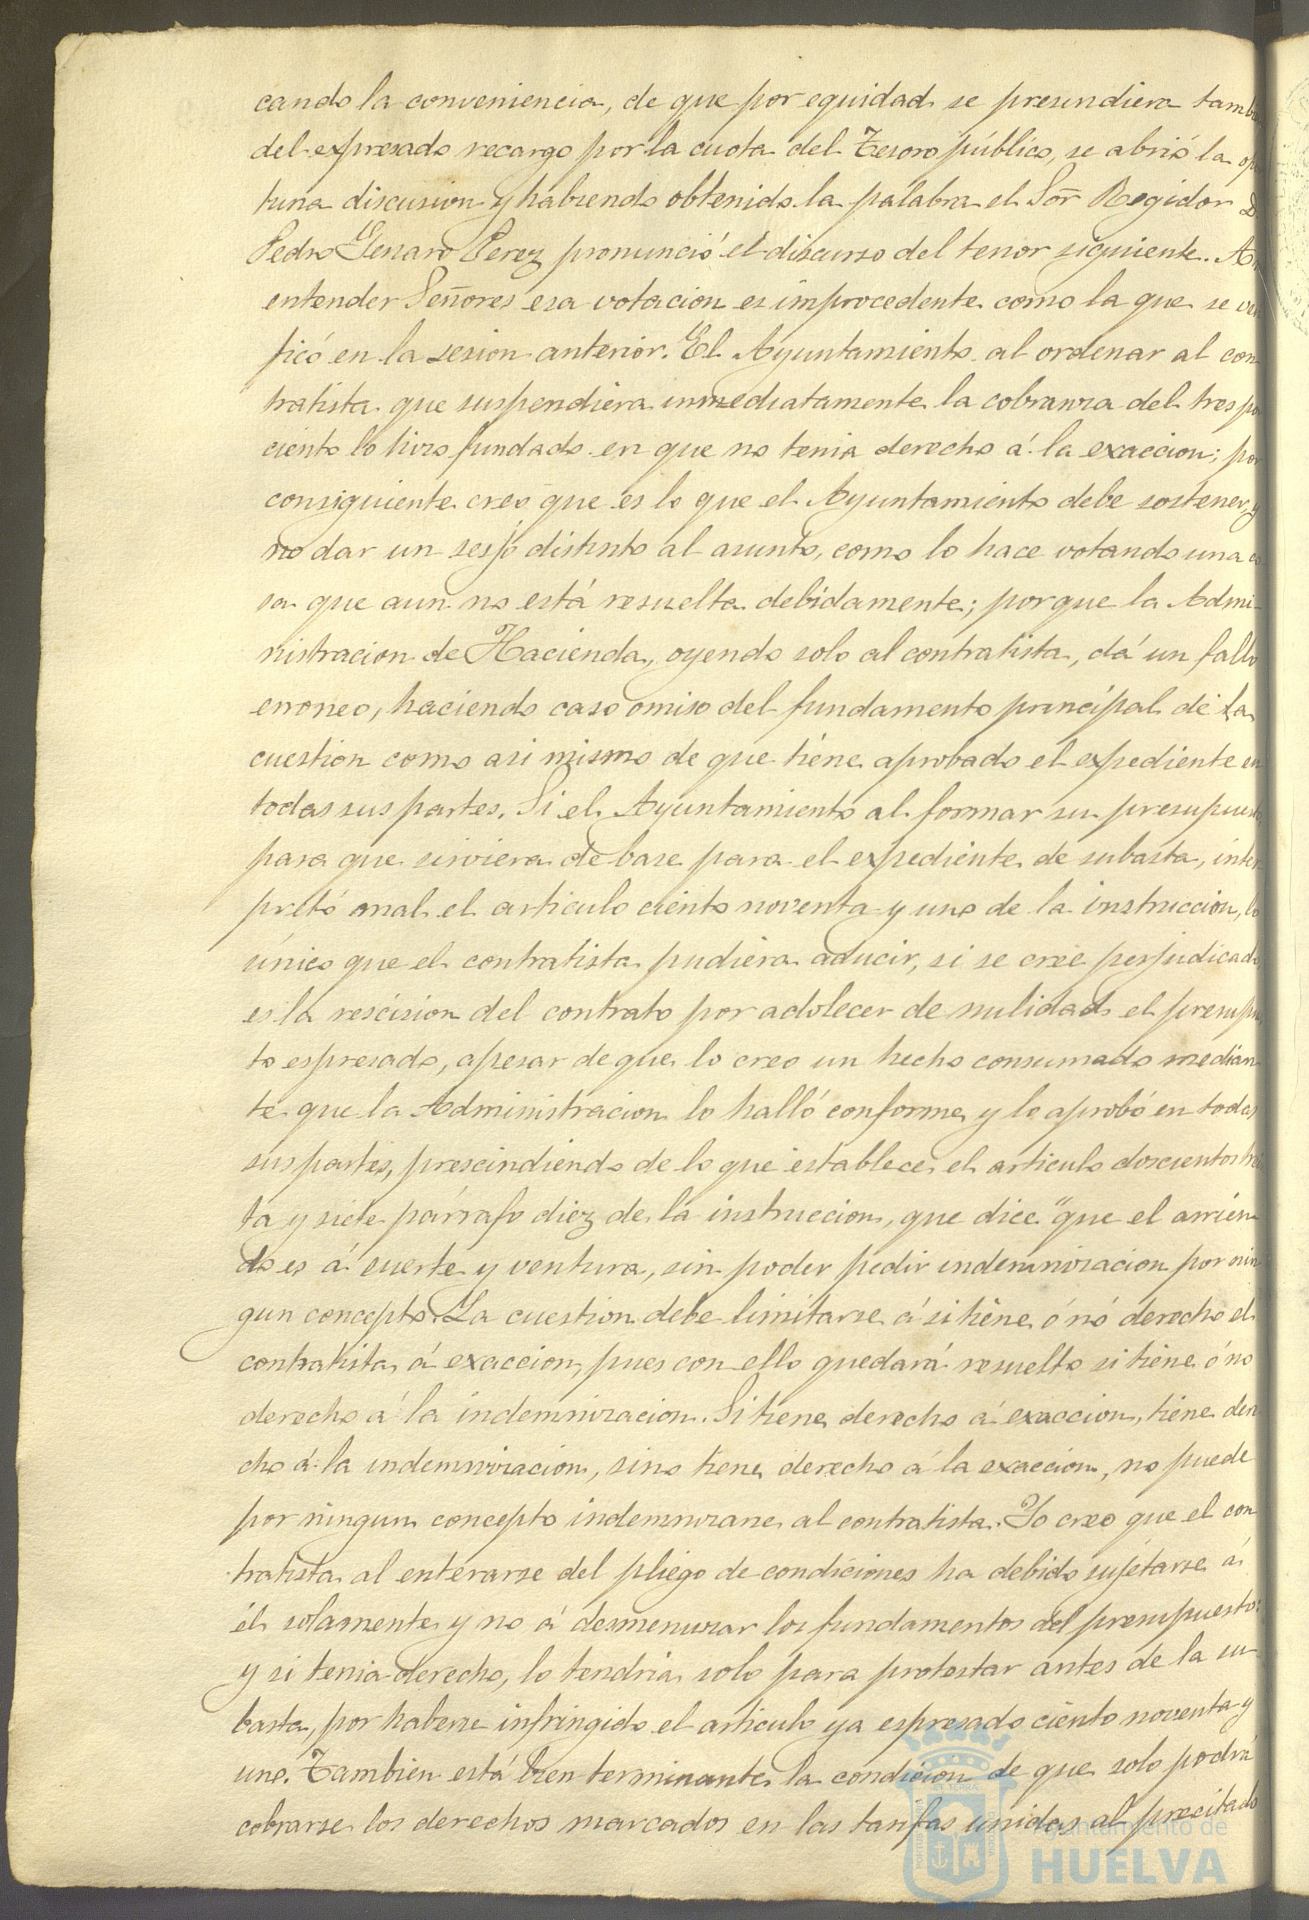 cando la conveniencia, de que por equidad se presindiera tambi
del expresado recargo por la cuota del Tesoro público, se abrió la op
tuna discusion y habiendo obtenido la palabra el Sor̃ Regidor D
Pedro Genaro Perez pronunció el discurso del tenor siguiente. A m
entender Señores esa votacion es improcedente como la que se ver
ficó en la sesion anterior. El Ayuntamiento al ordenar al con
tratista que suspendiera inmediatamente la cobranza del tres po
ciento lo hizo fundado en que no tenia derecho á la exaccion; por
consiguiente creo que es lo que el Ayuntamiento debe sostener, y
no dar un sesjo distinto al asunto, como lo hace votando una co
sa que aun no está resuelta debidamente; porque la Admi-
nistracion de Hacienda, oyendo solo al contratista, dá un fallo
erroneo, haciendo caso omiso del fundamento principal de la
cuestion como asi mismo de que tiene aprobado el expediente en
todas sus partes. Si el Ayuntamiento al formar su presupuesto
para que sirviera de base para el expediente de subasta, inter
pretó mal el articulo ciento noventa y uno de la instruccion, lo
único que el contratista pudiera aducir, si se creé perjudicado
es la rescision del contrato por adolecer de nulidad el presupu
to espresado, apesar de que lo creo un hecho consumado median
te que la Administracion lo halló conforme y lo aprobó en todas
sus partes, prescindiendo de lo que establece el articulo doscientos trei
ta y siete párrafo diez de la instruccion, que dice "que el arrien
do es á suerte y ventura, sin poder pedir indemnizacion por nin
gun concepto. La cuestion debe limitarse á si tiene ó nó derecho el
contratista á exaccion, pues con ello quedará resuelto si tiene ó no
derecho á la indemnizacion. Si tiene derecho á exaccion, tiene dere
cho á la indemnizacion, si no tiene derecho á la exaccion, no puede
por ningun concepto indemnizarse al contratista. Yo creo que el con
tratista al enterarse del pliego de condiciones ha debido sujetarse á
él solamente y no á desmenuzar los fundamentos del presupuesto:
y si tenia derecho, lo tendria solo para protestar antes de la su
basta, por haberse infringido el articulo ya espresado ciento noventa y
uno. Tambien está bien terminante la condicion de que solo podrá
cobrarse los derechos marcados en las tarifas unidas al precitado
Ayuntamiento de
HUELVA